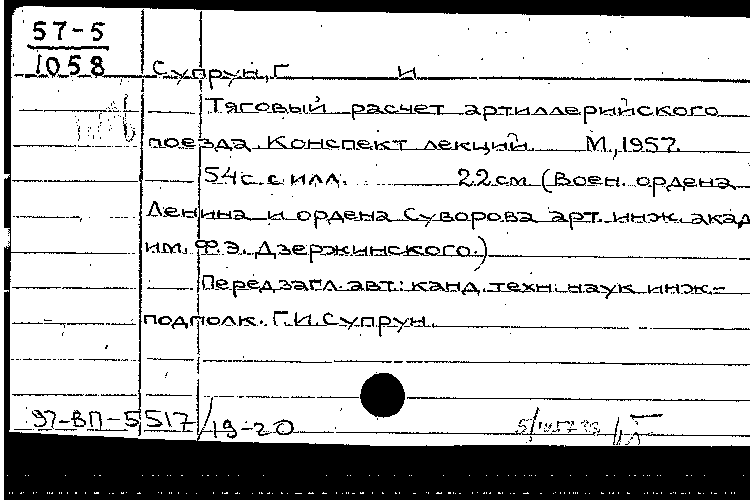 57-5
1058
Супрун, Г И
Тяговый расчет артиллерийского
поезда. Конспект лекций. М., 1957.
54 с. с илл. 22 см (Воен. ордена
Ленина и ордена Суворова арт. инж. акад
им. Ф.Э. Дзержинского.)
Перед загл. авт.: канд. техн. наук инж.-
подполк. Г.И. Супрун.
97-ВП-5517/19-20